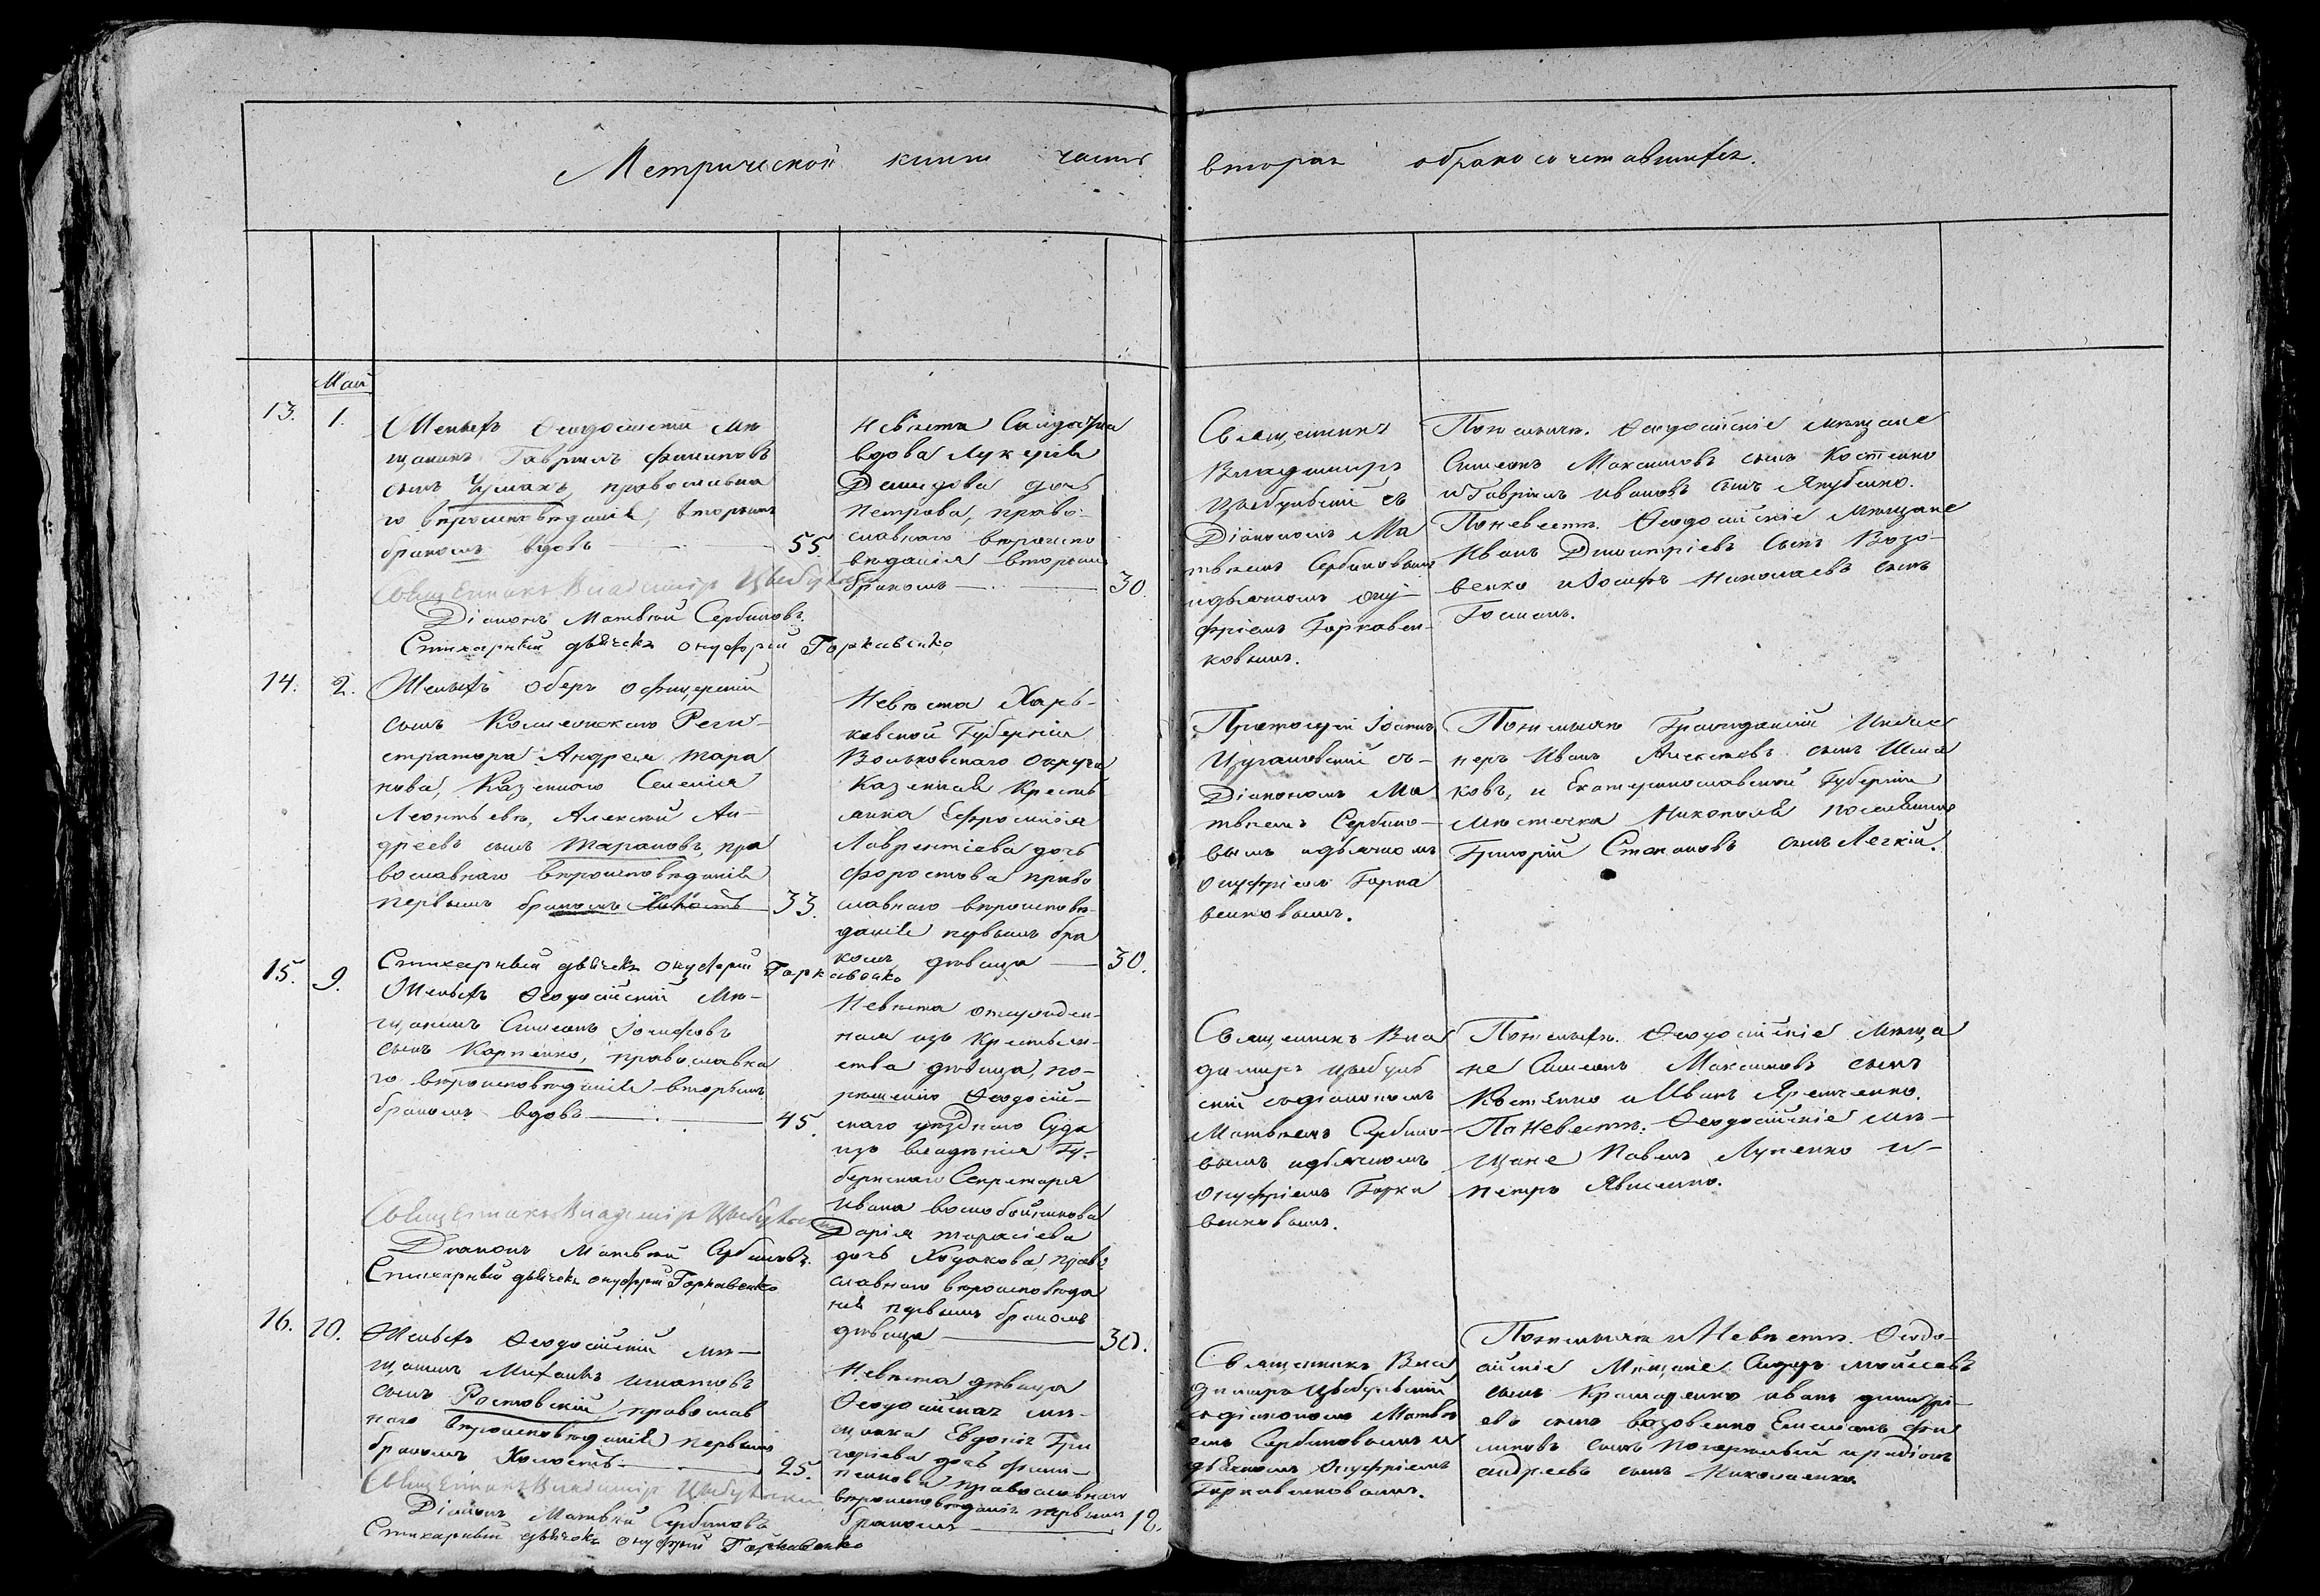 Метрической книги часть вторая о бракосочетавшихся.
Май
13.
1.
Женихъ Ѳеодосійскій мѣ
щанинъ Гавріилъ Филиповъ
сынъ Чумакъ, православна
го вѣроисповѣданія, вторымъ
бракомъ вдовъ
55
Священникъ Владиміръ Цыбульскій
Діаконъ Матвѣй Сербиновъ.
Стихарный дьячекъ Онуфрій Горкавенко
Невѣста
вдова Лукерія
Демидова дочь
Петрова, право-
славнаго вѣроиспо
вѣданія вторымъ
бракомъ
30.
Священникъ
Владимиръ
Цыбульскій съ
Діакономъ Ма
твѣемъ Сербиновымъ
и дьячкомъ Ону-
фріемъ Горкавен-
ковымъ.
По женихѣ. Ѳеодосійскіе мѣщане
Симеонъ Максимовъ сынъ Костенко
и Гавріилъ Ивановъ сынъ Якубенко.
По невестѣ. Ѳеодосійскіе мѣщане
Иванъ Дмитріевъ сынъ Возо-
венко и Іосифъ Николаевъ сынъ
14.
2.
Женихъ оберъ офицерскій
сынъ Коллежскаго Реги-
стратора Андрея Тара
нова, Казеннаго Селенія
Леонтьева, Алексѣй Ан-
дреевъ сынъ Тарановъ, пра
вославнаго вѣроисповѣданія
первымъ бракомъ холостъ
33.
Стихарный дьячекъ Онуфрій Горкавенко
Невѣста Харь-
ковской Губерніи
Волковскаго округа
Казенная Кресть
янка Ефросинія
Лаврентіева дочь
Форостова право
славнаго вѣроисповѣ-
данія первымъ бра
комъ, дѣвица
30.
Протоіерей Іоаннъ
съ
Діакономъ Ма
твѣемъ Сербино-
вымъ и дьячкомъ
Онуфріемъ Горка
венковымъ.
По женихѣ Гражданскій Инже
неръ Иванъ Алексѣевъ сынъ Шма
ковъ, и Екатеринославской Губерніи
мѣстечка Никополя поселянинъ
Григорій Степановъ сынъ Легкій.
15.
9.
Женихъ Ѳеодосійскій Мѣ-
щанинъ Симеонъ Іосифовъ
сынъ Карпенко, православна
го вѣроисповѣданія вторымъ
бракомъ вдовъ
45.
Священникъ Владиміръ Цыбульскій
Діаконъ Матвѣй Сербиновъ.
Стихарный дьячекъ Онуфрій Горкавенко
Невѣста отсужден-
ная изъ крестьян-
ства дѣвица, по-
рѣшенію Ѳеодосій-
скаго уѣзднаго Суда
изъ владѣнія Гу-
бернскаго Секретаря
Ивана
Дарія Тарасіева
дочь Ходакова, право
славнаго вѣроисповѣда
нія первымъ бракомъ
дѣвица
30.
Священникъ Вла
димиръ Цыбуль
скій съ діакономъ
Матвѣемъ Сербино-
вымъ и дьячкомъ
Онуфріемъ Горка
венковымъ.
По женихѣ. Ѳеодосійскіе Мѣща
не Симеонъ Максимовъ сынъ
Костенко и Иванъ Яремченко.
По Невестѣ. Ѳеодосійскіе мѣ-
щане Павелъ Луценко и-
Петръ
16.
10.
Женихъ Ѳеодосійскій мѣ-
щанинъ Михаилъ Игнатовъ
сынъ Ростовскій, православ
наго вѣроисповѣданія первымъ
бракомъ Холостъ
25.
Священникъ Владиміръ Цыбульскій
Діаконъ Матвѣй Сербиновъ
Стихарный дьячекъ Онуфрій Горкавенко
Невѣста дѣвица
Ѳеодосійская мѣ-
щанка Евдокія Гри
горіева дочь Фили-
пенкова православнаго
вѣроисповѣданія первымъ
бракомъ
18.
Священникъ Вла
димиръ Цыбульскій
съ діакономъ Матвѣ
емъ Сербиновымъ и
дьячкомъ Онуфріемъ
Горкавенковымъ.
По женихѣ и Невѣстѣ. Ѳеодо-
сійскіе Мѣщане Сидоръ Мойсеевъ
сынъ Крамаренко Иванъ Димитрі-
евъ сынъ Возовенко Емеліанъ Фи
липовъ сынъ
Андреевъ сынъ Николаенко.